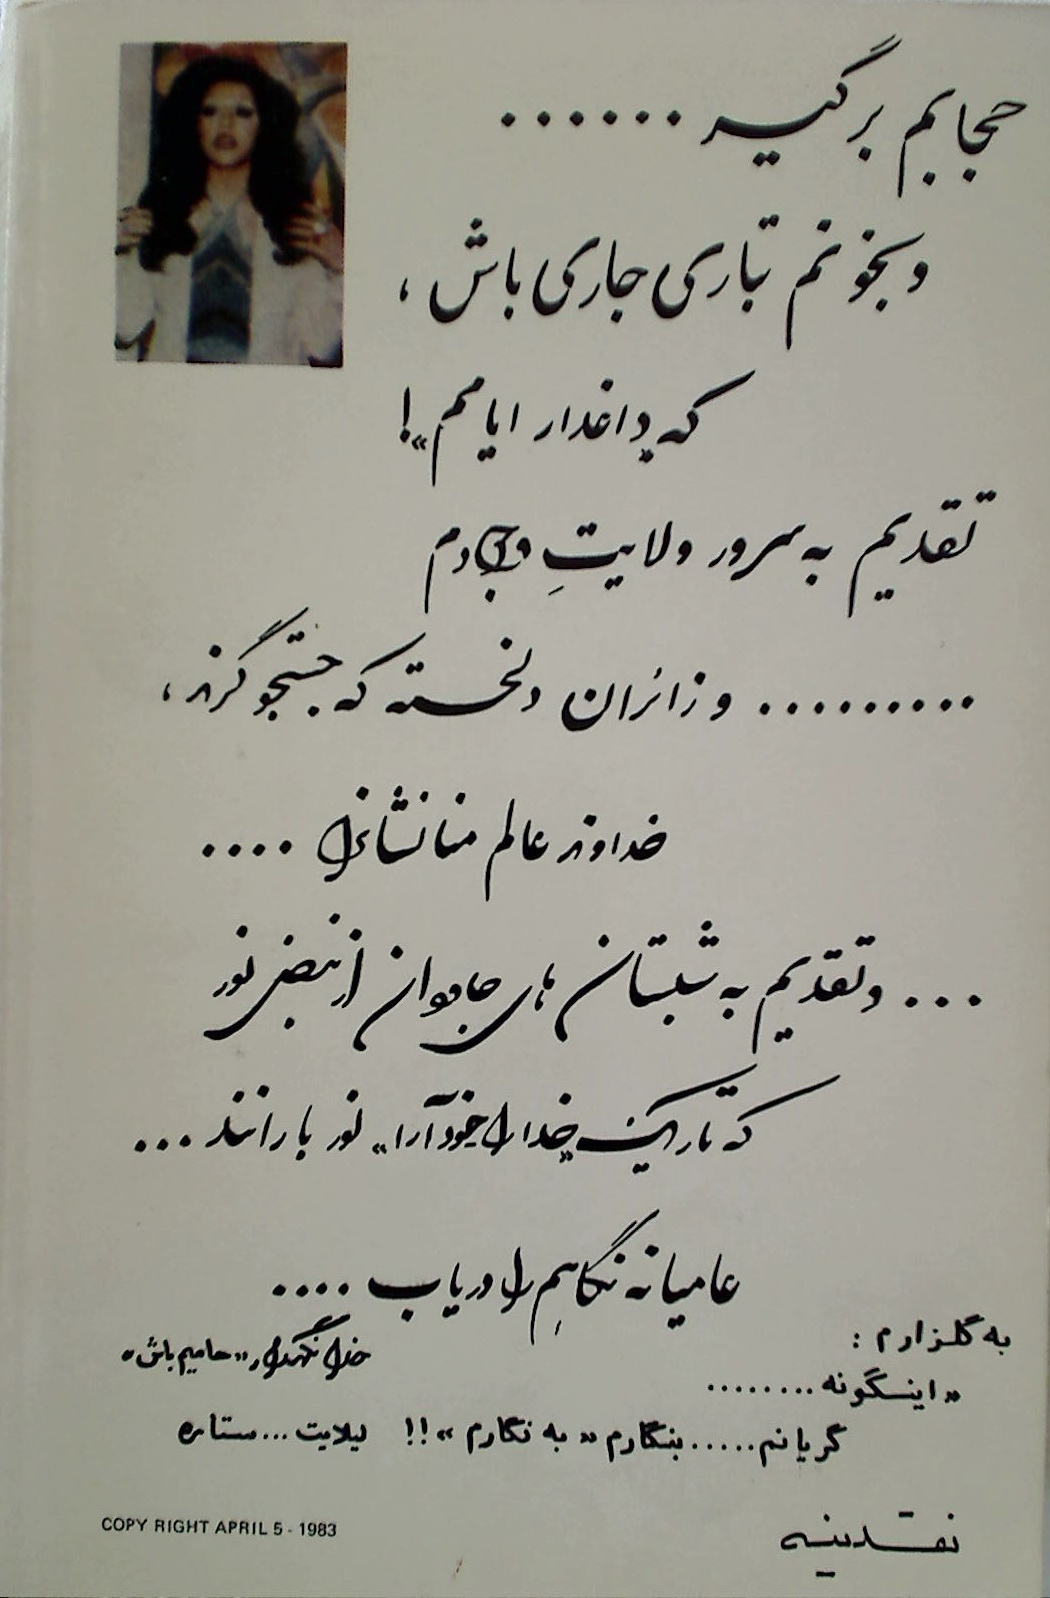 حجابم برگیر ......
و بخونم تباری جاری باش ،
که «داغدار ایامم»!
تقدیم به سرور ولایتِ
......... و زائران دلخسته که جستجو گرند ،
خداوند عالم منانشانرا ....
... و تقدیم به شبستان های جاودان از نبض نور
که تاریک «خدارا خودآرا» نور بارانند ...
عامیانه نگاهم را دریاب ....
به گلزارم :
خدا نگهدار «حامیم باش»
«اینگونه ........
گریانم ..... بنگارم «به نگارم» !! لیلایت ... ستاره
نقدینه
COPY RIGHT APRIL 5 - 1983